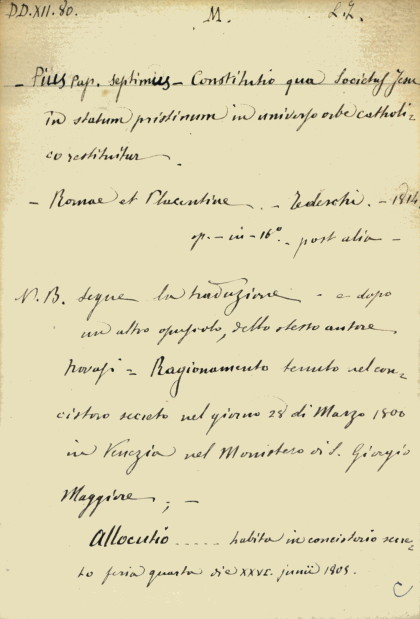 DD.XII.80. M. L.I.
- Pius Pap. Septimus - Constitutio qua Societas Jesu
in statum pristinum in universo orbe catholi=
co restituitur.
- Romae et Placentiae. - Tedeschi. - 1814.
op. - in - 16º. - post alia -
N.B. Segue la traduzione - e dopo
un altro opuscolo, dello stesso autore
trovasi = Ragionamento tenuto nel con=
cistoro secreto nel giorno 28 di Marzo 1800
in Venezia nel Monistero di S. Giorgio
Maggiore; -
Allocutio ..... habita in concistorio secre=
to feria quarta die XXVI. junii 1805.
C